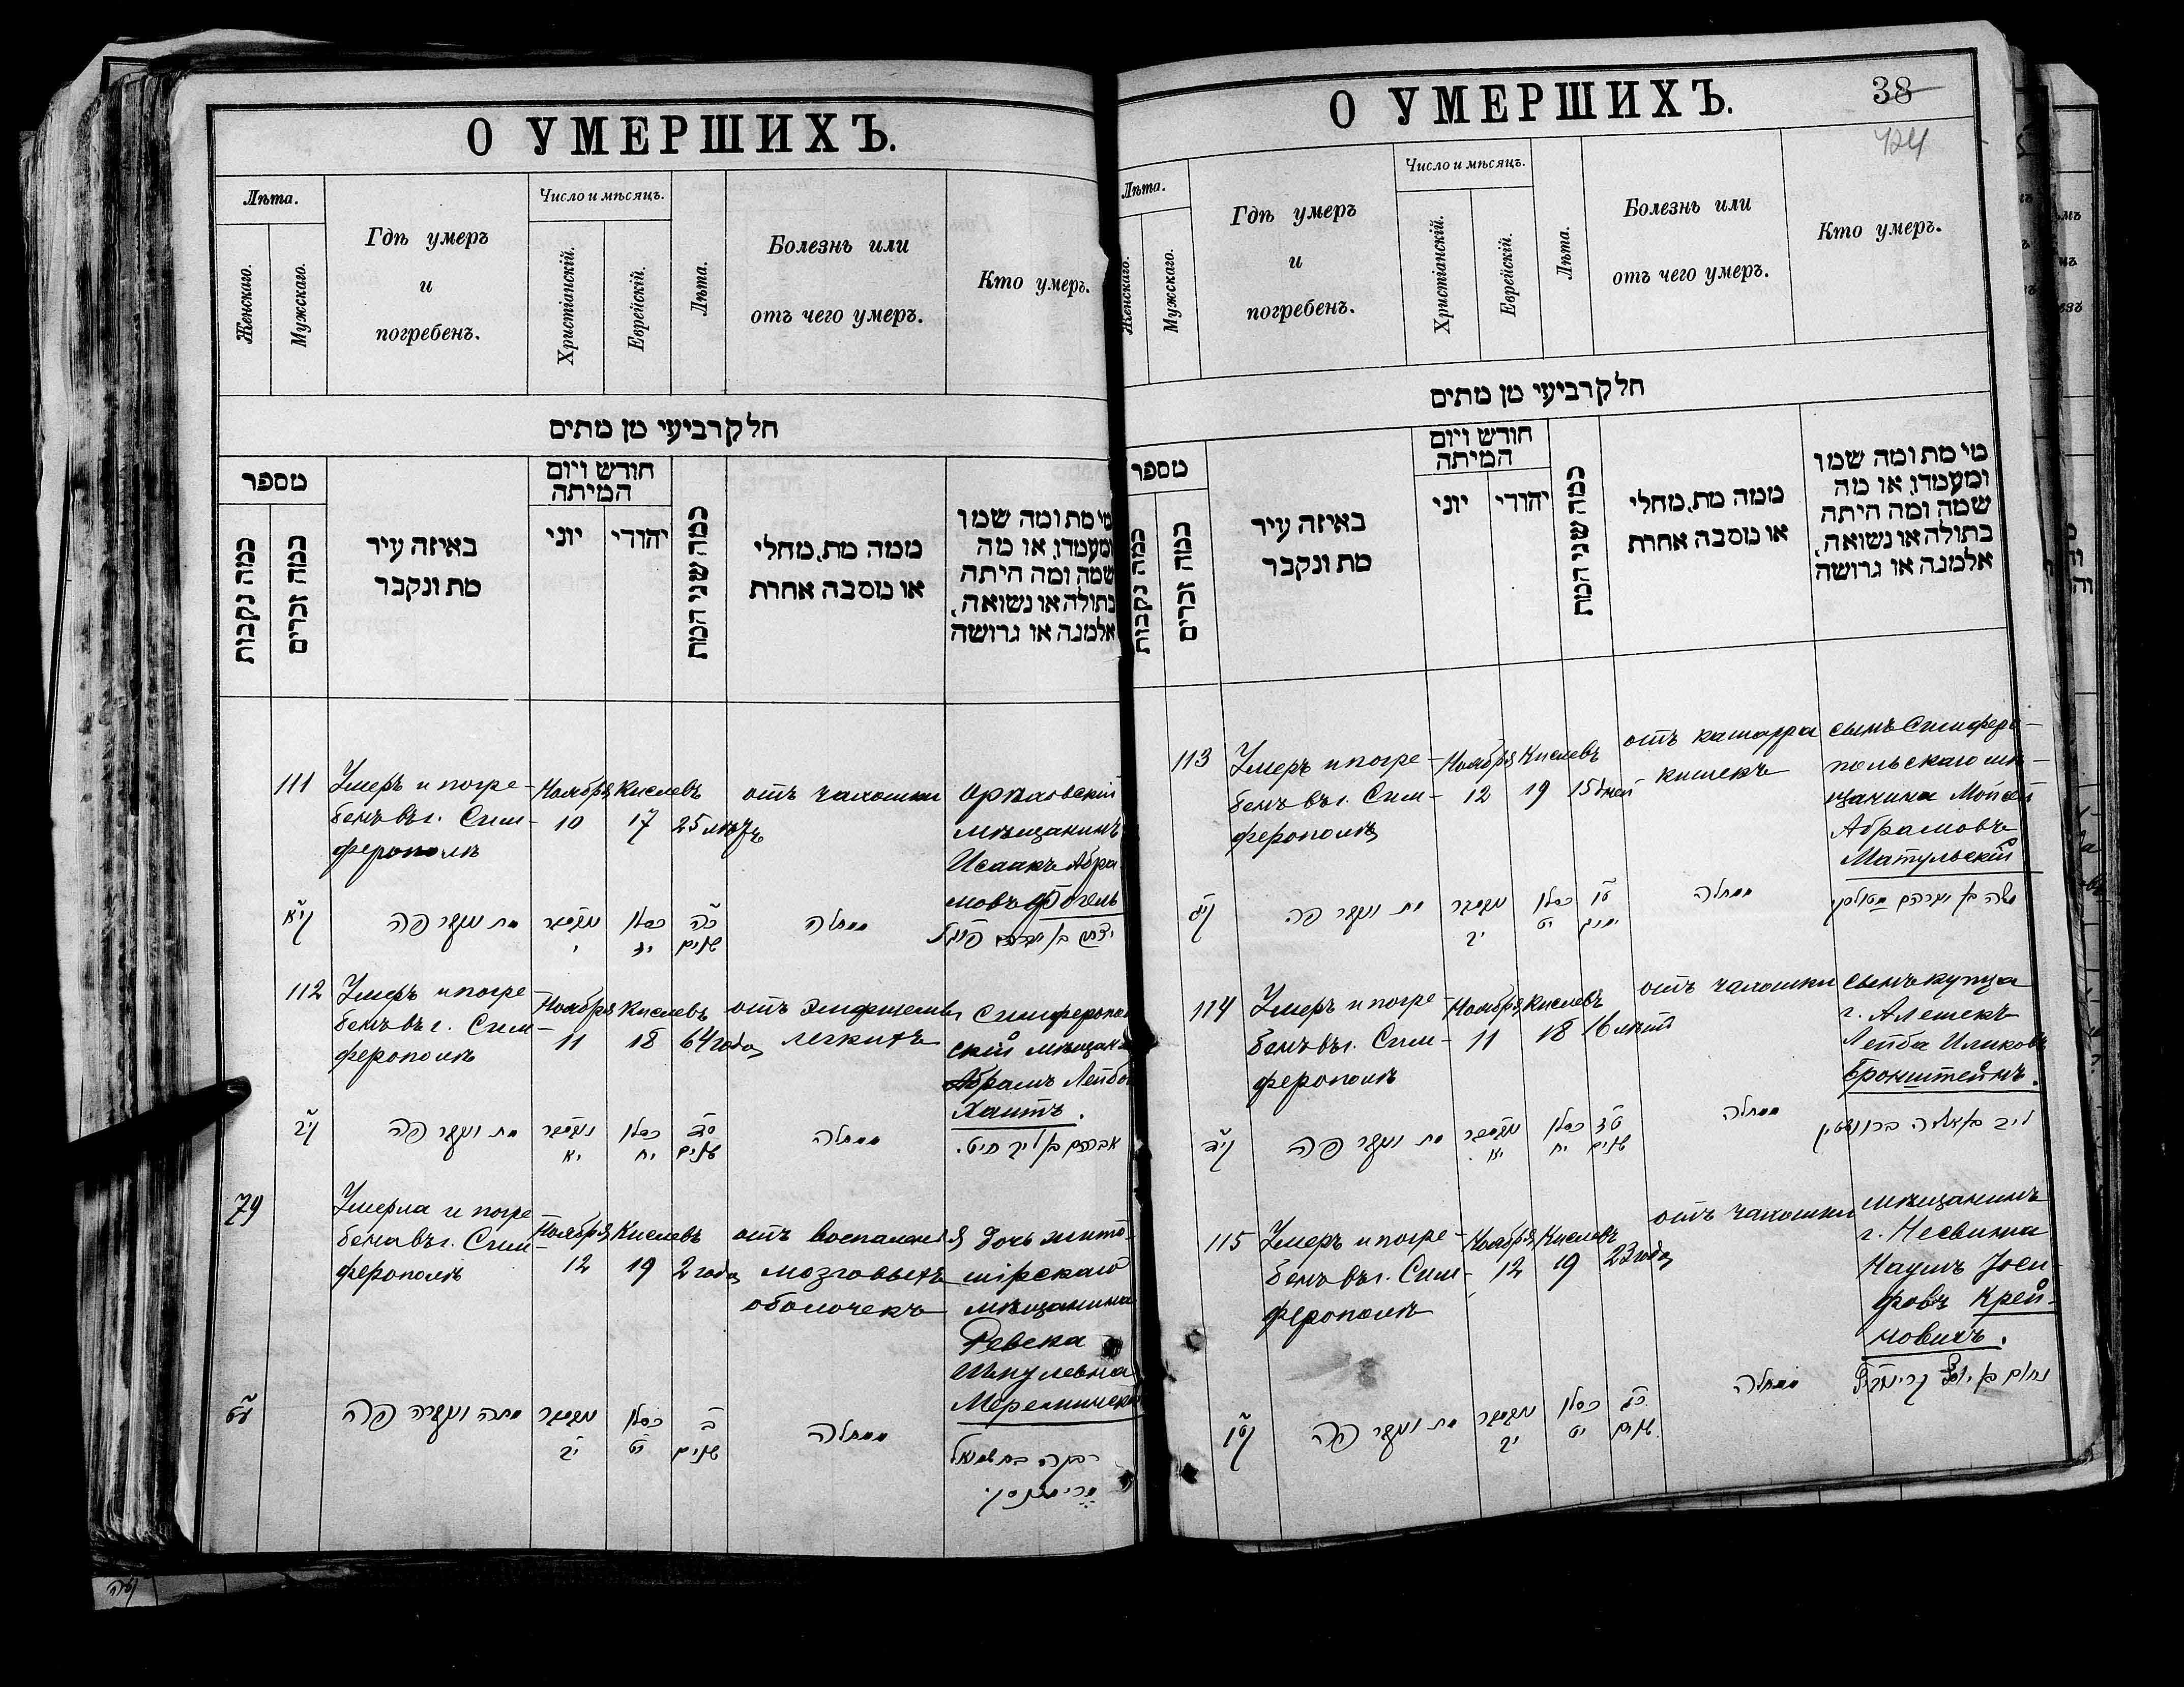 О УМЕРШИХЪ.
Лѣта.
Женскаго.
Мужскаго.
Гдѣ умеръ
и
погребенъ.
Число и мѣсяцъ.
Христіанскій.
Еврейскій.
Лѣта.
Болезнь или
отъ чего умеръ.
Кто умеръ.
חלק רביעי מן מתים
מספר
כמה נקבות
כמה זכרים
באיזה עיר
מת ונקבר
חודש ויום
המיתה
יוני
יהודי
כמה שני המת
ממה מת, מחלי
או מסבה אחרת
מי מת ומה שמו
ומעמדו, או מה
שמה ומה היתה
בתולה או נשואה,
אלמנה או גרושה
111
Умеръ и погре-
бенъ въ г. Сим-
ферополѣ
Ноября
10
Кислевъ
17
25 лѣтъ
отъ чахотки
Орѣховскій
мѣщанинъ
Исаакъ Абра
мовъ Фогель
קי״א
מת ונקבר פה
נאװעמבר
י
כסלו
יז
כה
שנים
מחלה
יצחק בן אברהם פויגל
112
Умеръ и погре-
бенъ въ г. Сим-
ферополѣ
Ноября
11
Кислевъ
18
64 года
отъ эмфиземы
легкихъ
Симферополь
скій мѣщан
Абрамъ Лейбов
Хаитъ.
קי״ב
מת ונקבר פה
יא
כסלו
יח
סד
שנים
מחלה
אברהם בן ליב חיט.
79
Умерла и погре
бена въ г. Сим-
ферополѣ
Ноября
12
Кислевъ
19
2 года
отъ воспаленія
мозговыхъ
оболочекъ
дочь жито
мірскаго
мѣщанина
Ревека
Шмулевна
ע״ט
מתה ונקברה פה
יב
כסלו
יט
ב
שנים
מחלה
רבקה בת שמואל
О УМЕРШИХЪ.
38
424
Лѣта.
Женскаго.
Мужскаго.
Гдѣ умеръ
и
погребенъ.
Число и мѣсяцъ.
Христіанскій.
Еврейскій.
Лѣта.
Болезнь или
отъ чего умеръ.
Кто умеръ.
חלק רביעי מן מתים
מספר
כמה נקבות
כמה זכרים
באיזה עיר
מת ונקבר
חודש ויום
המיתה
יוני
יהודי
כמה שני המת
ממה מת, מחלי
או מסבה אחרת
מי מת ומה שמו
ומעמדו, או מה
שמה ומה היתה
בתולה או נשואה,
אלמנה או גרושה
113
Умеръ и погре-
бенъ въ г. Сим-
ферополѣ
Ноября
12
Кислевъ
19
15 дней
отъ катарра
кишекъ
сынъ Симферо-
польскаго мѣ-
щанина Мойсей
Абрамовъ
Матульскій
קי״ג
מת ונקבר פה
יב
כסלו
יט
טו
ימים
מחלה
משה בן אברהם מטולסקי
114
Умеръ и погре-
бенъ въ г. Сим-
ферополѣ
Ноября
11
Кислевъ
18
16 лѣтъ
отъ чахотки
сынъ купца
г. Алешекъ
Лейба Иликовъ
Бронштейнъ.
קי״ד
מת ונקבר פה
יא
כסלו
יח
טז
שנים
מחלה
ליב בן אליה ברונשטין
115
Умеръ и погре-
бенъ въ г. Сим-
ферополѣ
Ноября
12
Кислевъ
19
23 года
отъ чахотки
мѣщанинъ
г. Несвижа
Наумъ Іоси-
фовъ Крей-
новичъ.
קט״ו
מת ונקבר פה
יב
כסלו
יט
כג
שנים
מחלה
נחום בן יוסף